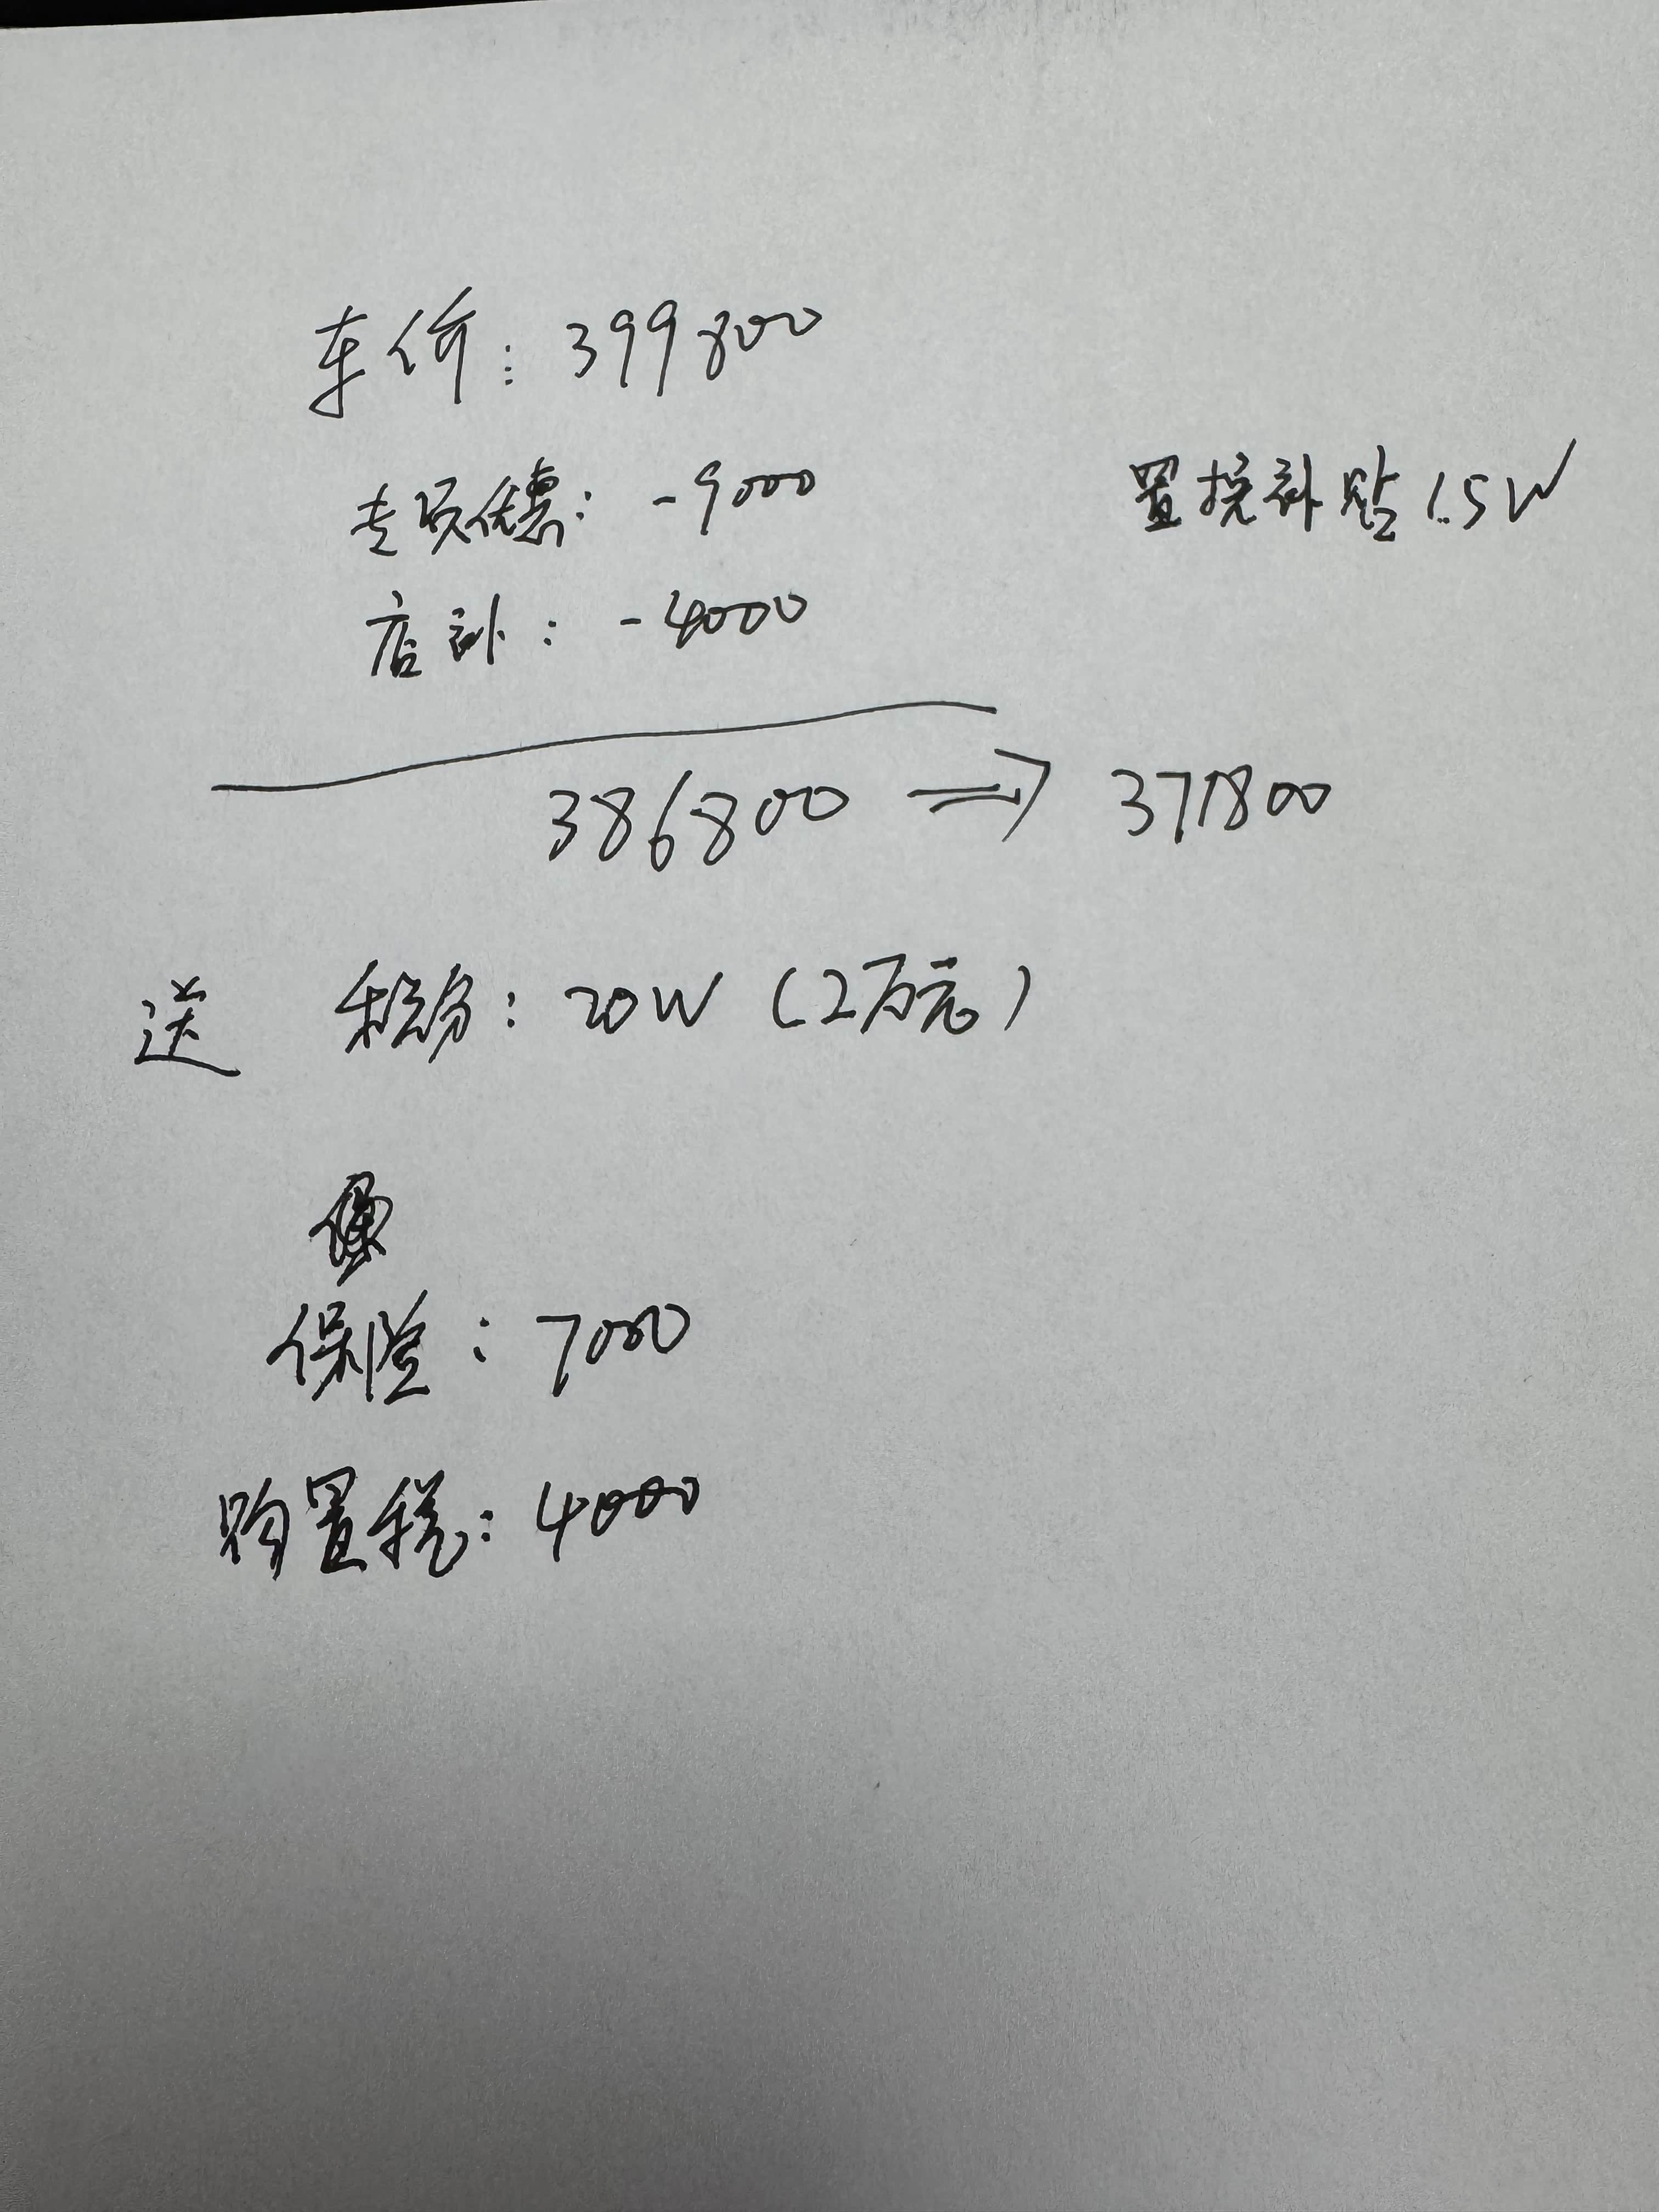 车价：399800
专项优惠：-9000
置换补贴1.5W
店补：-4000
386800 ⇒ 371800
送 积分：20W（2万元）
保险：7000
购置税：4000